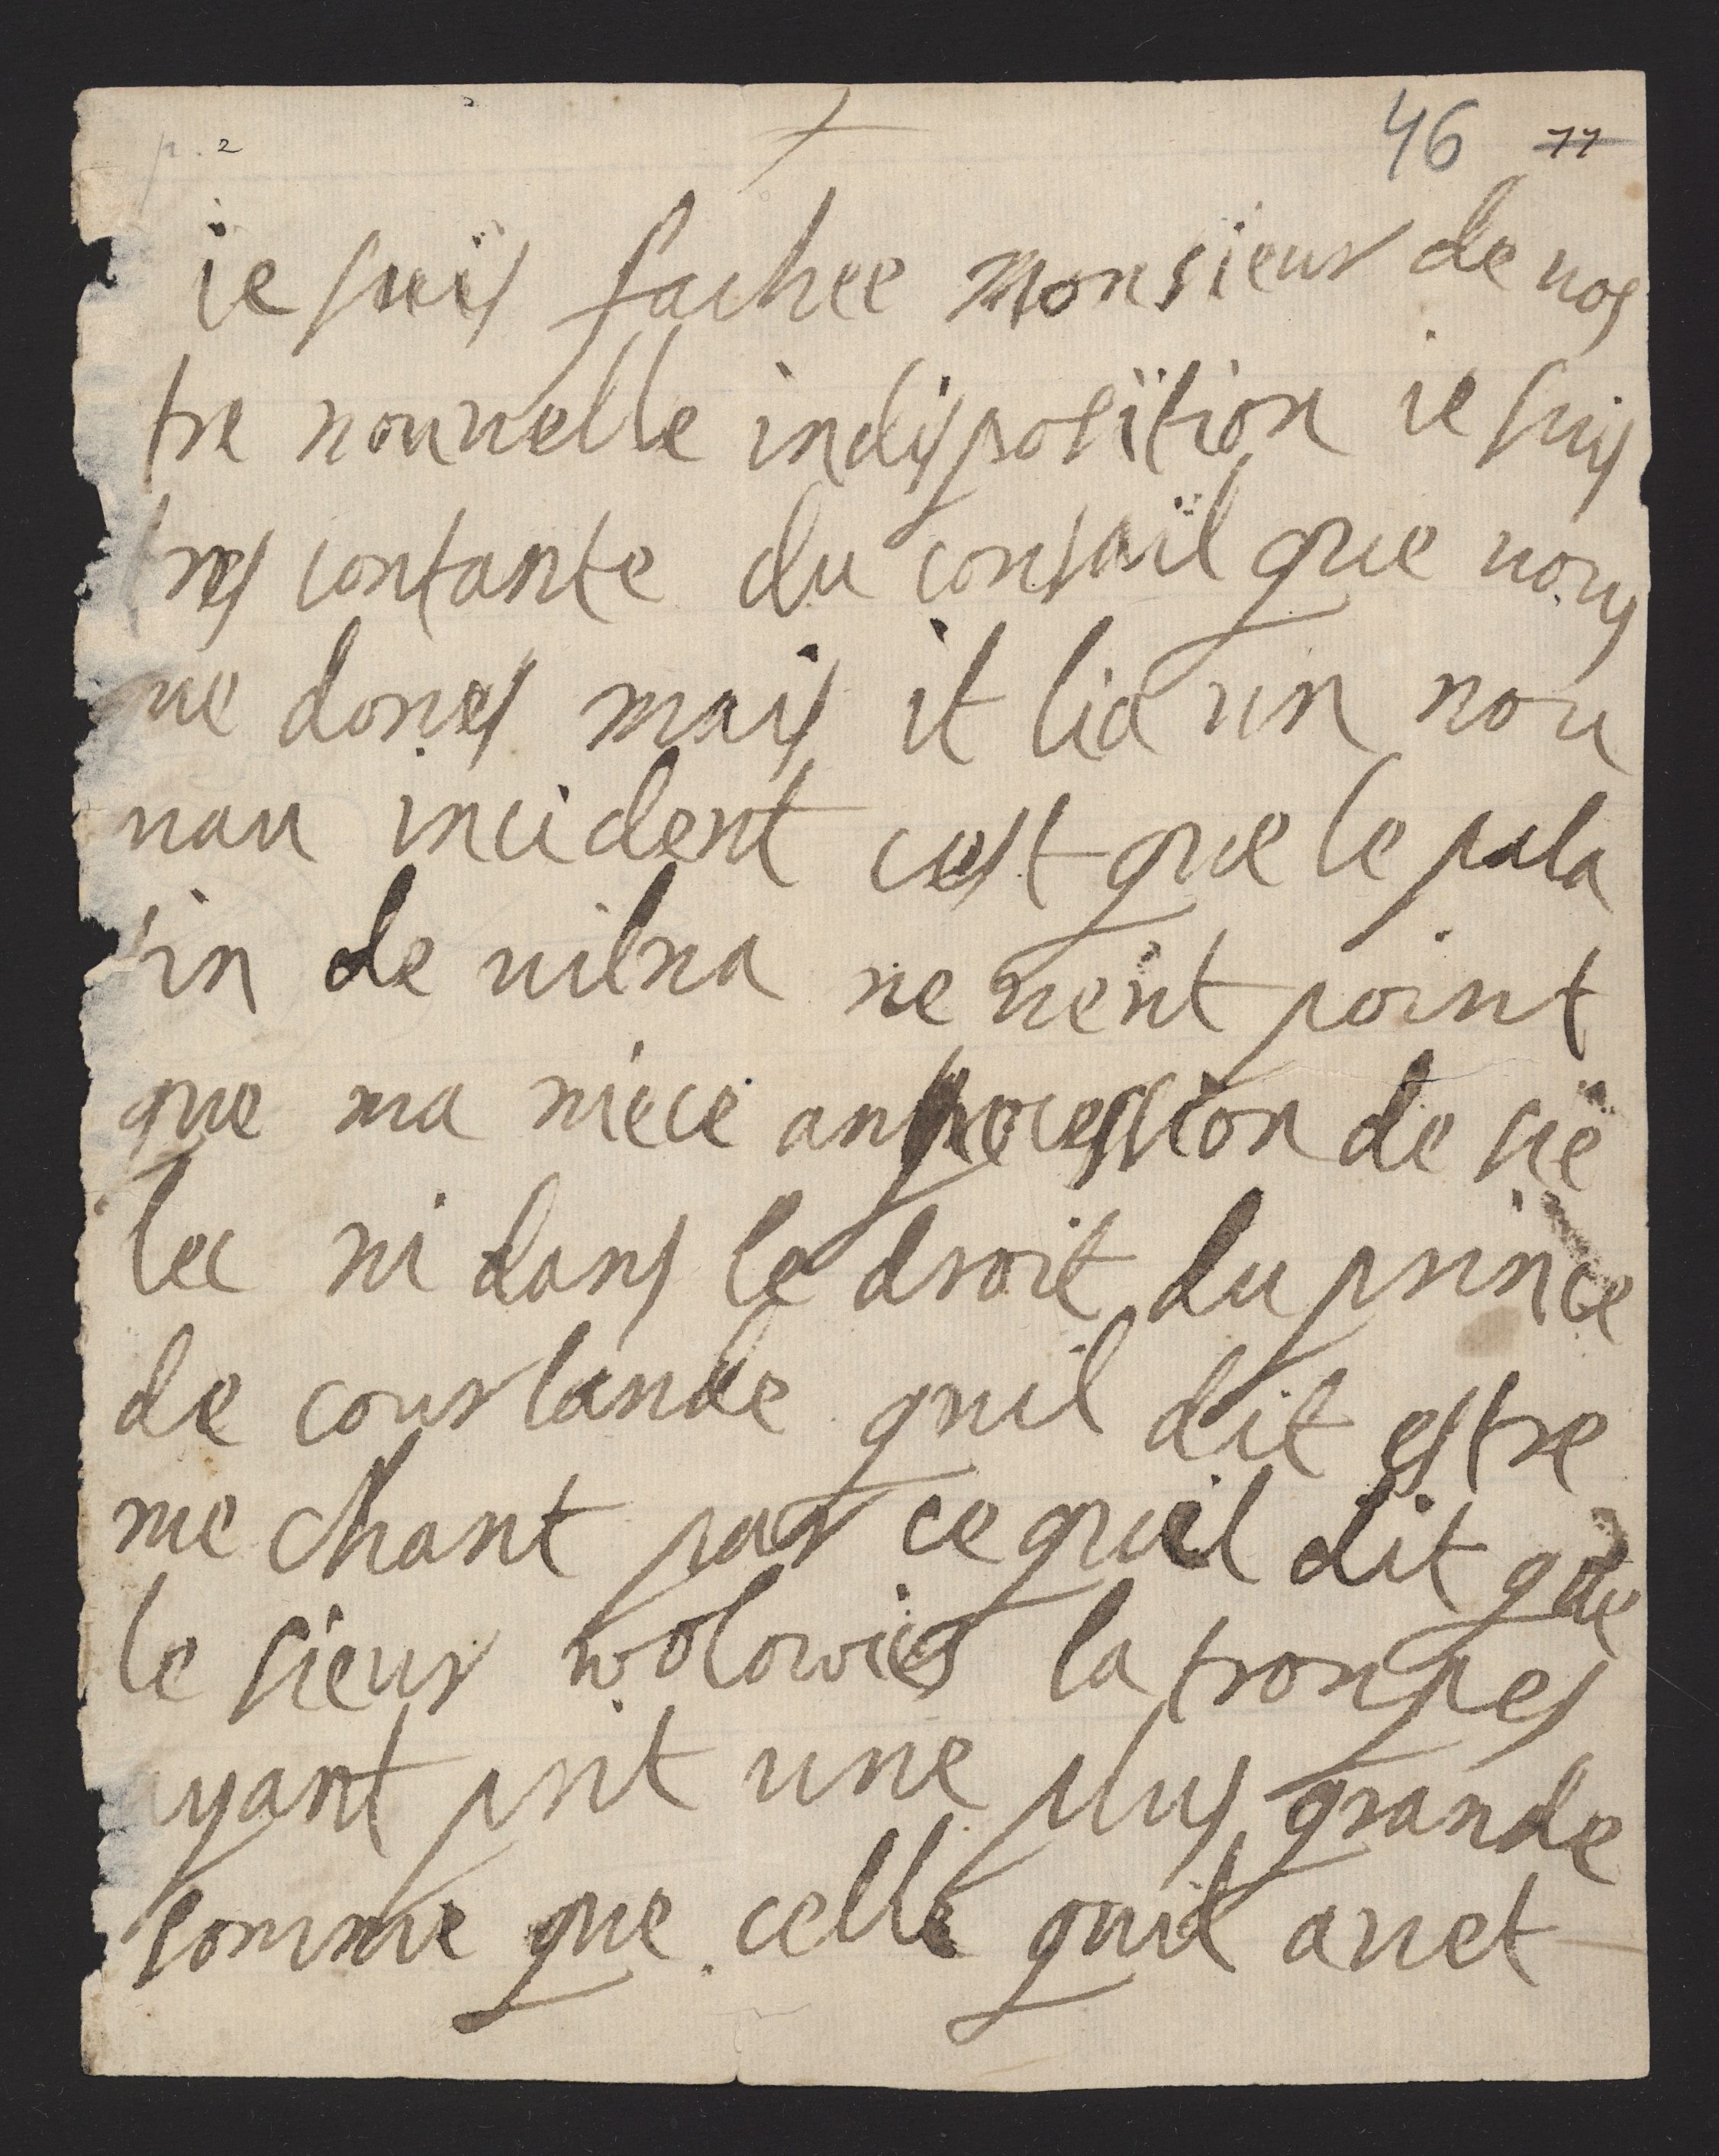 p. 2
46 77
ie suis fachee monsieur de uos
tre nouuelle indisposition ie suis
tres contante du consail que uous
me dones mais it lia un nou
uau incident cest que le pala
tin de uilna ne ueut point
que ma niece an procession de sie
lec ni dans le droit du prince
de courlande quil dit estre
me chant par ce quil dit que
le sieur wolowics la tronpes
ayant prit une plus grande
somme que celle quil auet